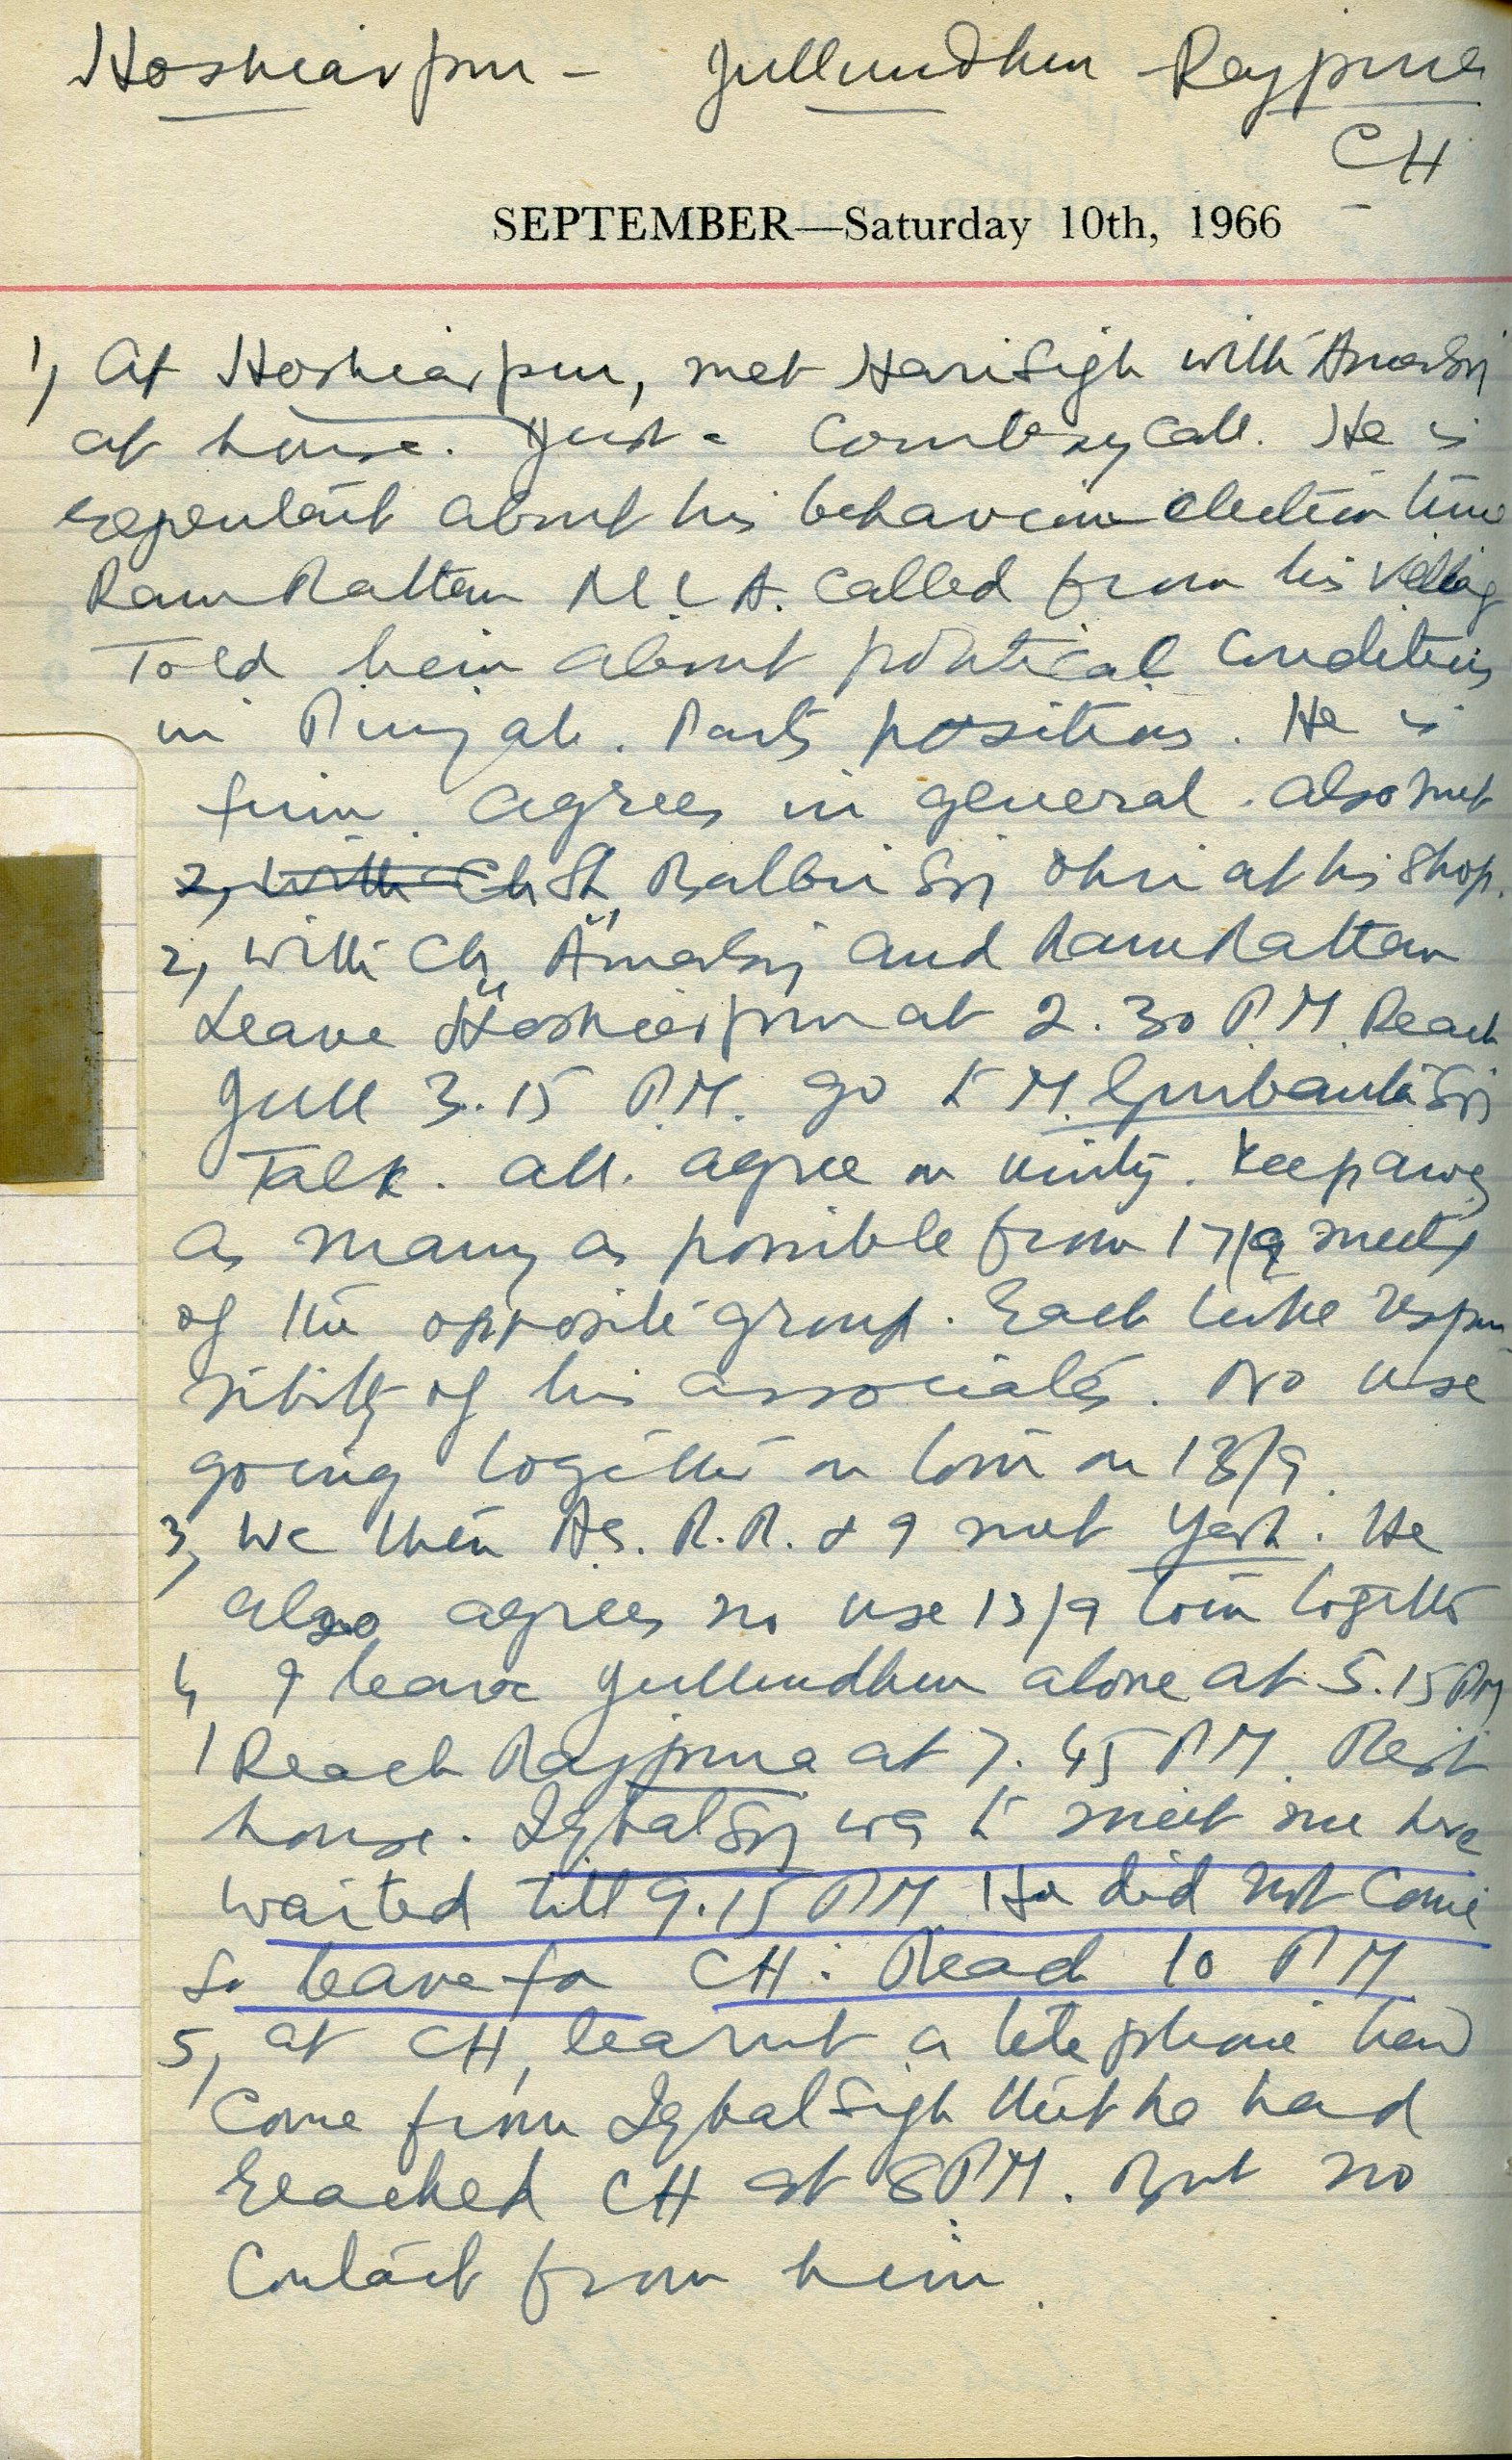 Hoshiarpur - Jullundhur Rajpura
CH
SEPTEMBER—Saturday 10th, 1966
1, At Hoshiarpur, met Hari Sigh with Amar Sn
at house. Just a Courtesy Call. He is
repentant about his behaviour election time
Ram Rattan M.L.A. Called from his Village
Told him about political Conditions
in Punjab. Party positions. He is
firm. agrees in general. also met
2, with Ch Sh Balbir Sn Ohri at his Shop.
2, with Ch, Amar Sn and Ram Rattan
Leave Hoshiarpur at 2.30 P.M. Reach
Jull 3.15 P.M. go to M. Gurbanta Sn
Talk. all. agree on unity. Keep away
as many as possible from 17/9 meetg
of the opposite group. Each take respon
sibility of his associates. No use
going together on tour on 13/9.
3, We then AS. R.R. & I met Yash. He
also agrees no use 13/9 tour together
4, I leave Jullundhur alone at 5.15 PM
Reach Rajpura at 7.45 P.M. Rest
house. Iqbal Sn was to meet me here
waited till 9.15 PM He did not Come
So leave for CH: Reach 10 P M
5, at CH, learnt a telephone had
Come from Iqbal Sigh that he had
reached CH at 8 P.M. But no
Contact from him.